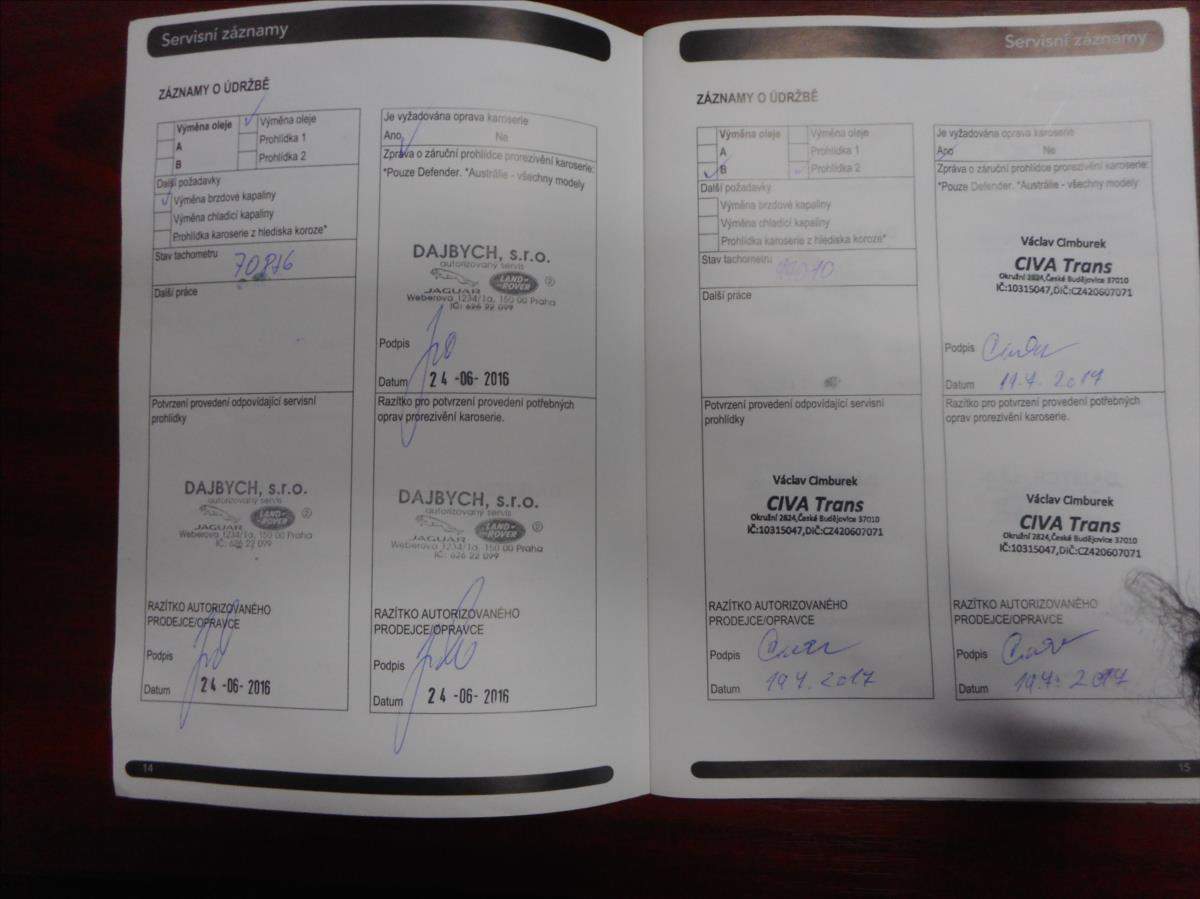 Servisní záznamy
ZÁZNAMY O ÚDRŽBĚ
Výměna oleje
A
B
Výměna oleje
Prohlídka 1
Prohlídka 2
Další požadavky
Výměna brzdové kapaliny
Výměna chladicí kapaliny
Prohlídka karoserie z hlediska koroze*
Stav tachometru 70816
Další práce
Je vyžadována oprava karoserie
Ano Ne
Zpráva o záruční prohlídce prorezivění karoserie:
*Pouze Defender. *Austrálie - všechny modely
DAJBYCH, s.r.o.
autorizovaný servis
JAGUAR LAND ROVER
Weberova 1234/1a, 150 00 Praha
IČ: 626 22 099
Podpis
Datum 24 -06- 2016
Potvrzení provedení odpovídající servisní
prohlídky
DAJBYCH, s.r.o.
autorizovaný servis
JAGUAR LAND ROVER
Weberova 1234/1a, 150 00 Praha
IČ: 626 22 099
RAZÍTKO AUTORIZOVANÉHO
PRODEJCE/OPRAVCE
Podpis
Datum 24 -06- 2016
Razítko pro potvrzení provedení potřebných
oprav prorezivění karoserie.
DAJBYCH, s.r.o.
autorizovaný servis
JAGUAR LAND ROVER
Weberova 1234/1a, 150 00 Praha
IČ: 626 22 099
RAZÍTKO AUTORIZOVANÉHO
PRODEJCE/OPRAVCE
Podpis
Datum 24 -06- 2016
14
Servisní záznamy
ZÁZNAMY O ÚDRŽBĚ
Výměna oleje
A
B
Výměna oleje
Prohlídka 1
Prohlídka 2
Další požadavky
Výměna brzdové kapaliny
Výměna chladicí kapaliny
Prohlídka karoserie z hlediska koroze*
Stav tachometru
Další práce
Je vyžadována oprava karoserie
Ano Ne
Zpráva o záruční prohlídce prorezivění karoserie:
*Pouze Defender. *Austrálie - všechny modely
Václav Cimburek
CIVA Trans
Okružní 2824,České Budějovice 37010
IČ:10315047,DIČ:CZ420607071
Podpis
Datum 19.4. 2017
Potvrzení provedení odpovídající servisní
prohlídky
Václav Cimburek
CIVA Trans
Okružní 2824,České Budějovice 37010
IČ:10315047,DIČ:CZ420607071
RAZÍTKO AUTORIZOVANÉHO
PRODEJCE/OPRAVCE
Podpis
Datum 19.4. 2017
Razítko pro potvrzení provedení potřebných
oprav prorezivění karoserie.
Václav Cimburek
CIVA Trans
Okružní 2824,České Budějovice 37010
IČ:10315047,DIČ:CZ420607071
RAZÍTKO AUTORIZOVANÉHO
PRODEJCE/OPRAVCE
Podpis
Datum 19.4. 2017
15